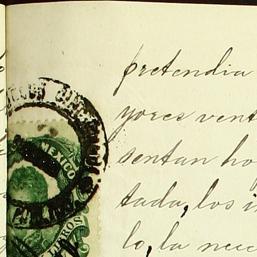 pretendia
yores vent
sentan ho
tada, los i
lo, la nec
MEXICO
LIBROS